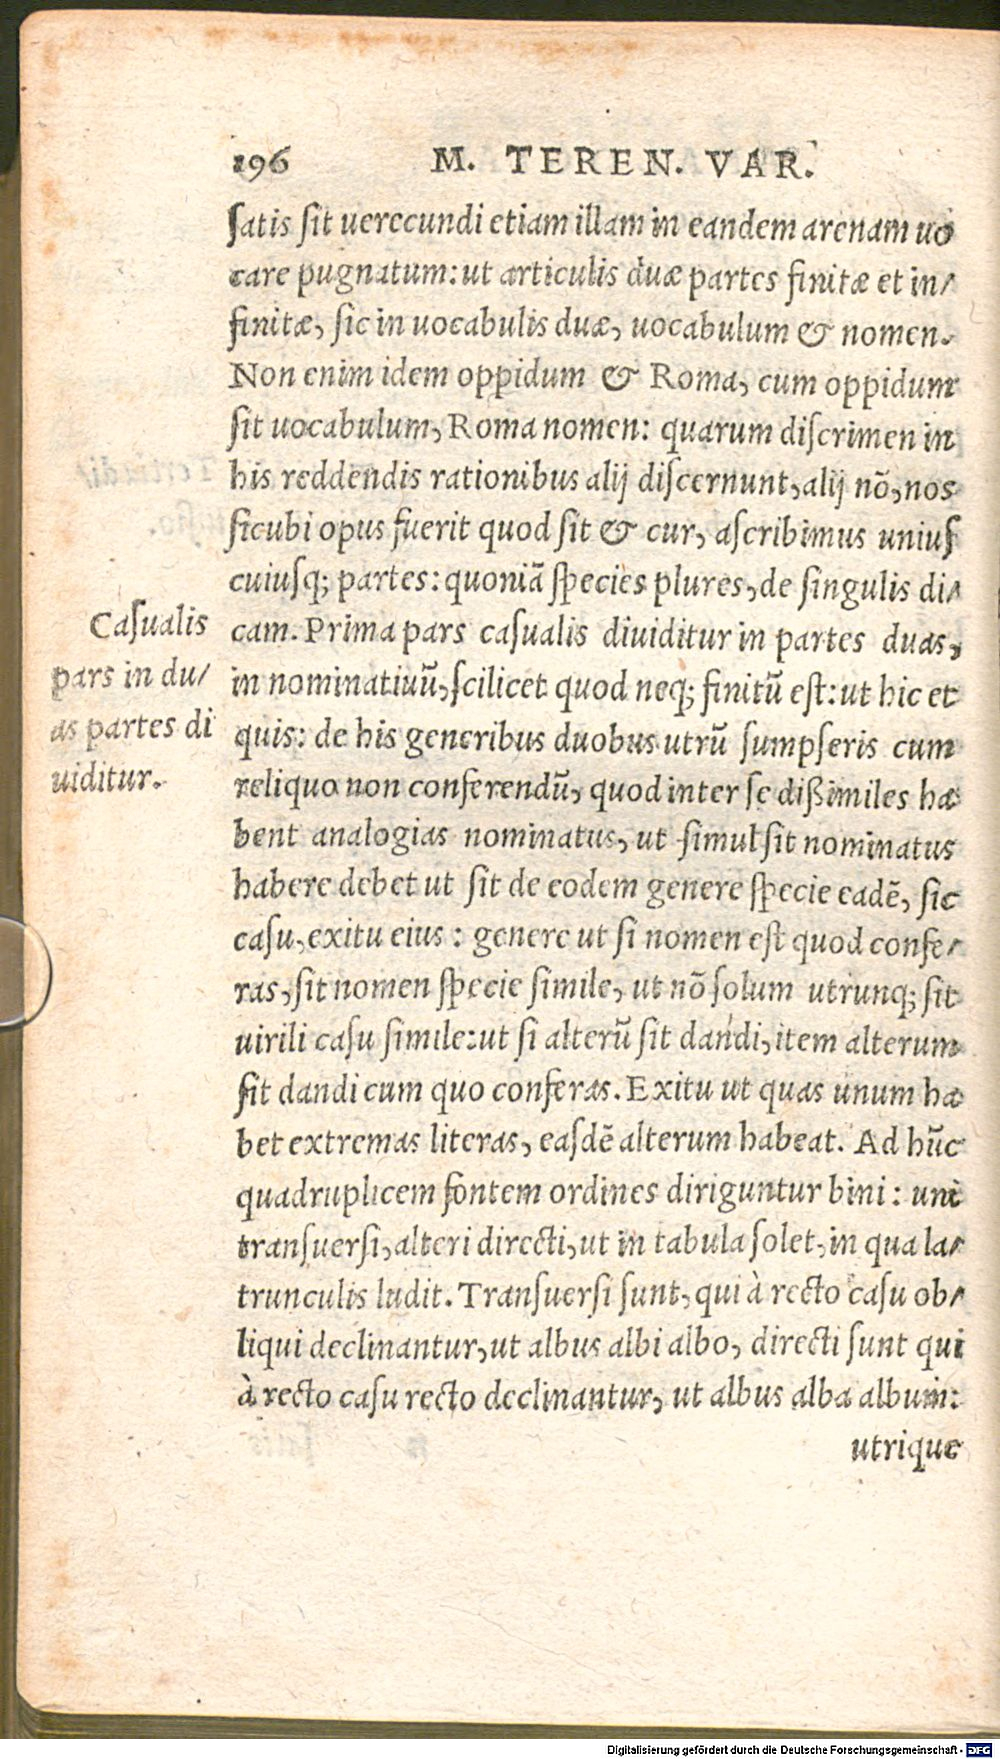 196 M. TEREN. VAR.
satis sit uerecundi etiam illam in eandem arenam uo
care pugnatum: ut articulis duæ partes finitæ et in/
finitæ, sic in uocabulis duæ, uocabulum & nomen.
Non enim idem oppidum & Roma, cum oppidum
sit uocabulum, Roma nomen: quarum discrimen in
his reddendis rationibus alij discernunt, alij nō, nos
sicubi opus fuerit quod sit & cur, ascribimus unius
cuiusq; partes: quoniā species plures, de singulis di/
cam. Prima pars casualis diuiditur in partes duas,
in nominatiuū, scilicet quod neq; finitū est: ut hic et
quis: de his generibus duobus utrū sumpseris cum
reliquo non conferendū, quod inter se dißimiles ha
bent analogias nominatus, ut simul sit nominatus
habere debet ut sit de eodem genere specie eadē, sic
casu, exitu eius: genere ut si nomen est quod confe/
ras, sit nomen specie simile, ut nō solum utrunq; sit
uirili casu simile: ut si alterū sit dandi, item alterum
sit dandi cum quo conferas. Exitu ut quas unum ha
bet extremas literas, easdē alterum habeat. Ad hūc
quadruplicem fontem ordines diriguntur bini: uni
transuersi, alteri directi, ut in tabula solet, in qua la/
trunculis ludit. Transuersi sunt, qui à recto casu ob/
liqui declinantur, ut albus albi albo, directi sunt qui
à recto casu recto declinantur, ut albus alba album:
utrique
Casualis
pars in du/
as partes di
uiditur.
Digitalisierung gefördert durch die Deutsche Forschungsgemeinschaft - DFG